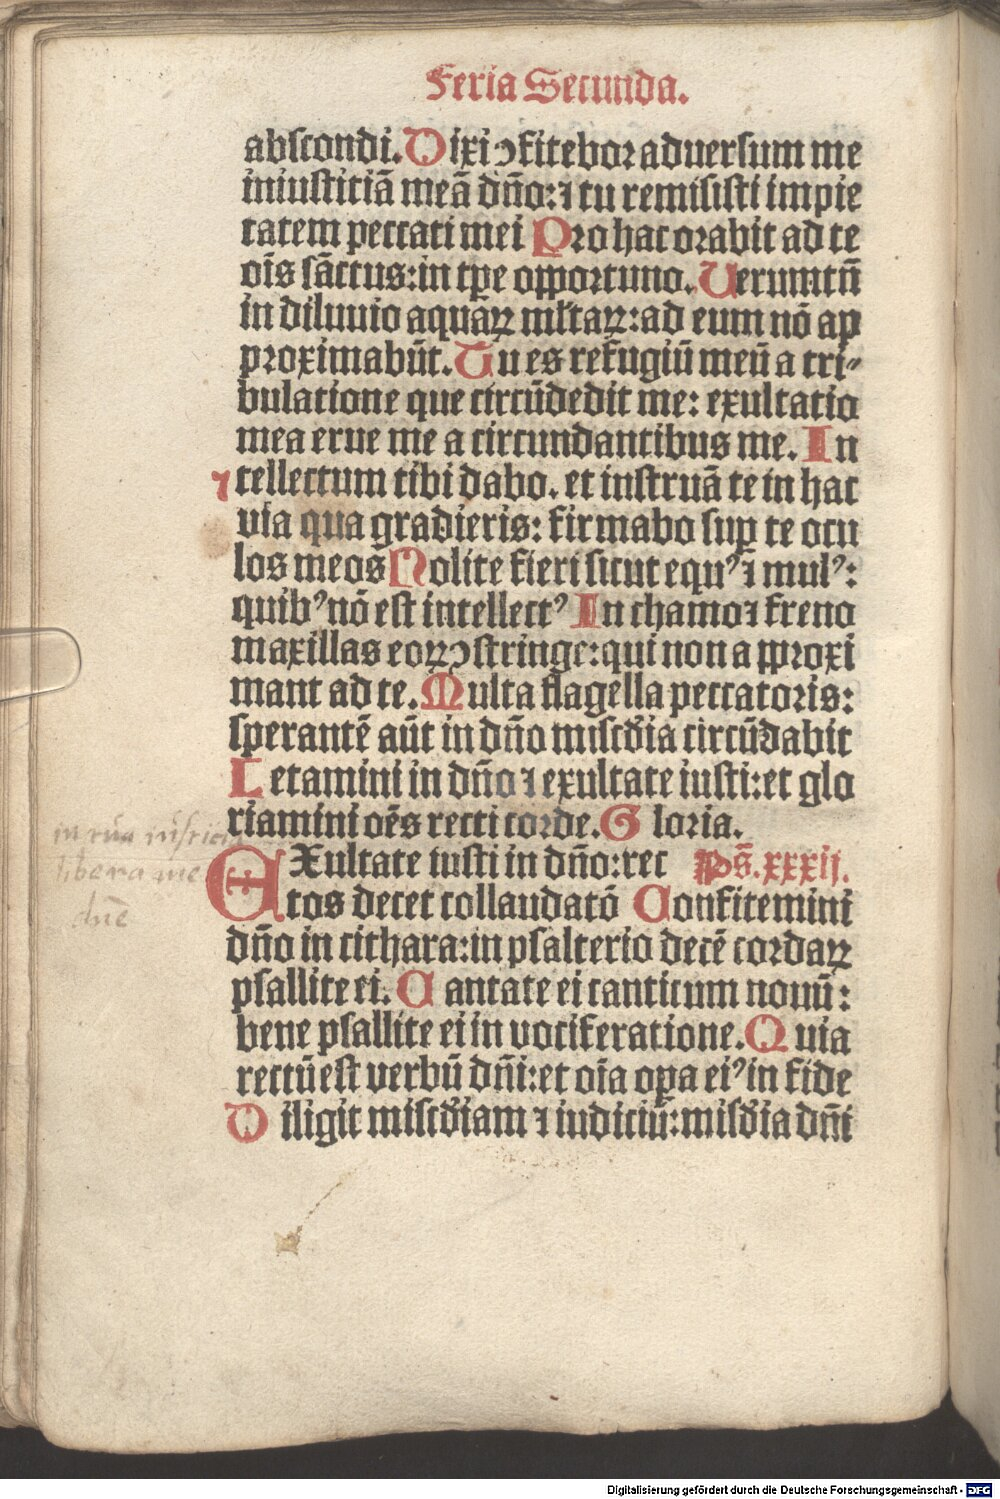 Feria Secunda.
abscondi. Dixi ↄfitebor aduersum me
iniusticiā meā dn̄o: ⁊ tu remisisti impie
tatem peccati mei Pro hac orabit ad te
oīs sāctus: in tp̄e opportuno. Uerumtn̄
in diluuio aquaꝝ ml̓taꝝ: ad eum nō ap
proximabūt. Tu es refugiū meū a tri⸗
bulatione que circūdedit me: exultatio
mea erue me a circundantibus me. In
⁊ tellectum tibi dabo. et instruā te in hac
via qua gradieris: firmabo sup̱ te ocu
los meos Nolite fieri sicut equꝰ ⁊ mulꝰ:
quibꝰ nō est intellectꝰ In chamo ⁊ freno
maxillas eoꝝ ↄstringe: qui non approxi
mant ad te. Multa flagella peccatoris:
sperantē aūt in dn̄o misc̄dia circūdabit
Letamini in dn̄o ⁊ exultate iusti: et glo
riamini oēs recti corde. Gloria.
EXultate iusti in dn̄o: rec Ps̄. xxxij.
tos decet collaudatō Confitemini
dn̄o in cithara: in psalterio decē cordaꝝ
psallite ei. Cantate ei canticum nouū:
bene psallite ei in vociferatione. Quia
rectū est verbū dn̄i: et oīa op̱a eiꝰ in fide
Diligit misc̄diam ⁊ iudiciū: mis̄dia dn̄i
in tua iusticia
libera me
dn̄e
Digitalisierung gefördert durch die Deutsche Forschungsgemeinschaft - DFG